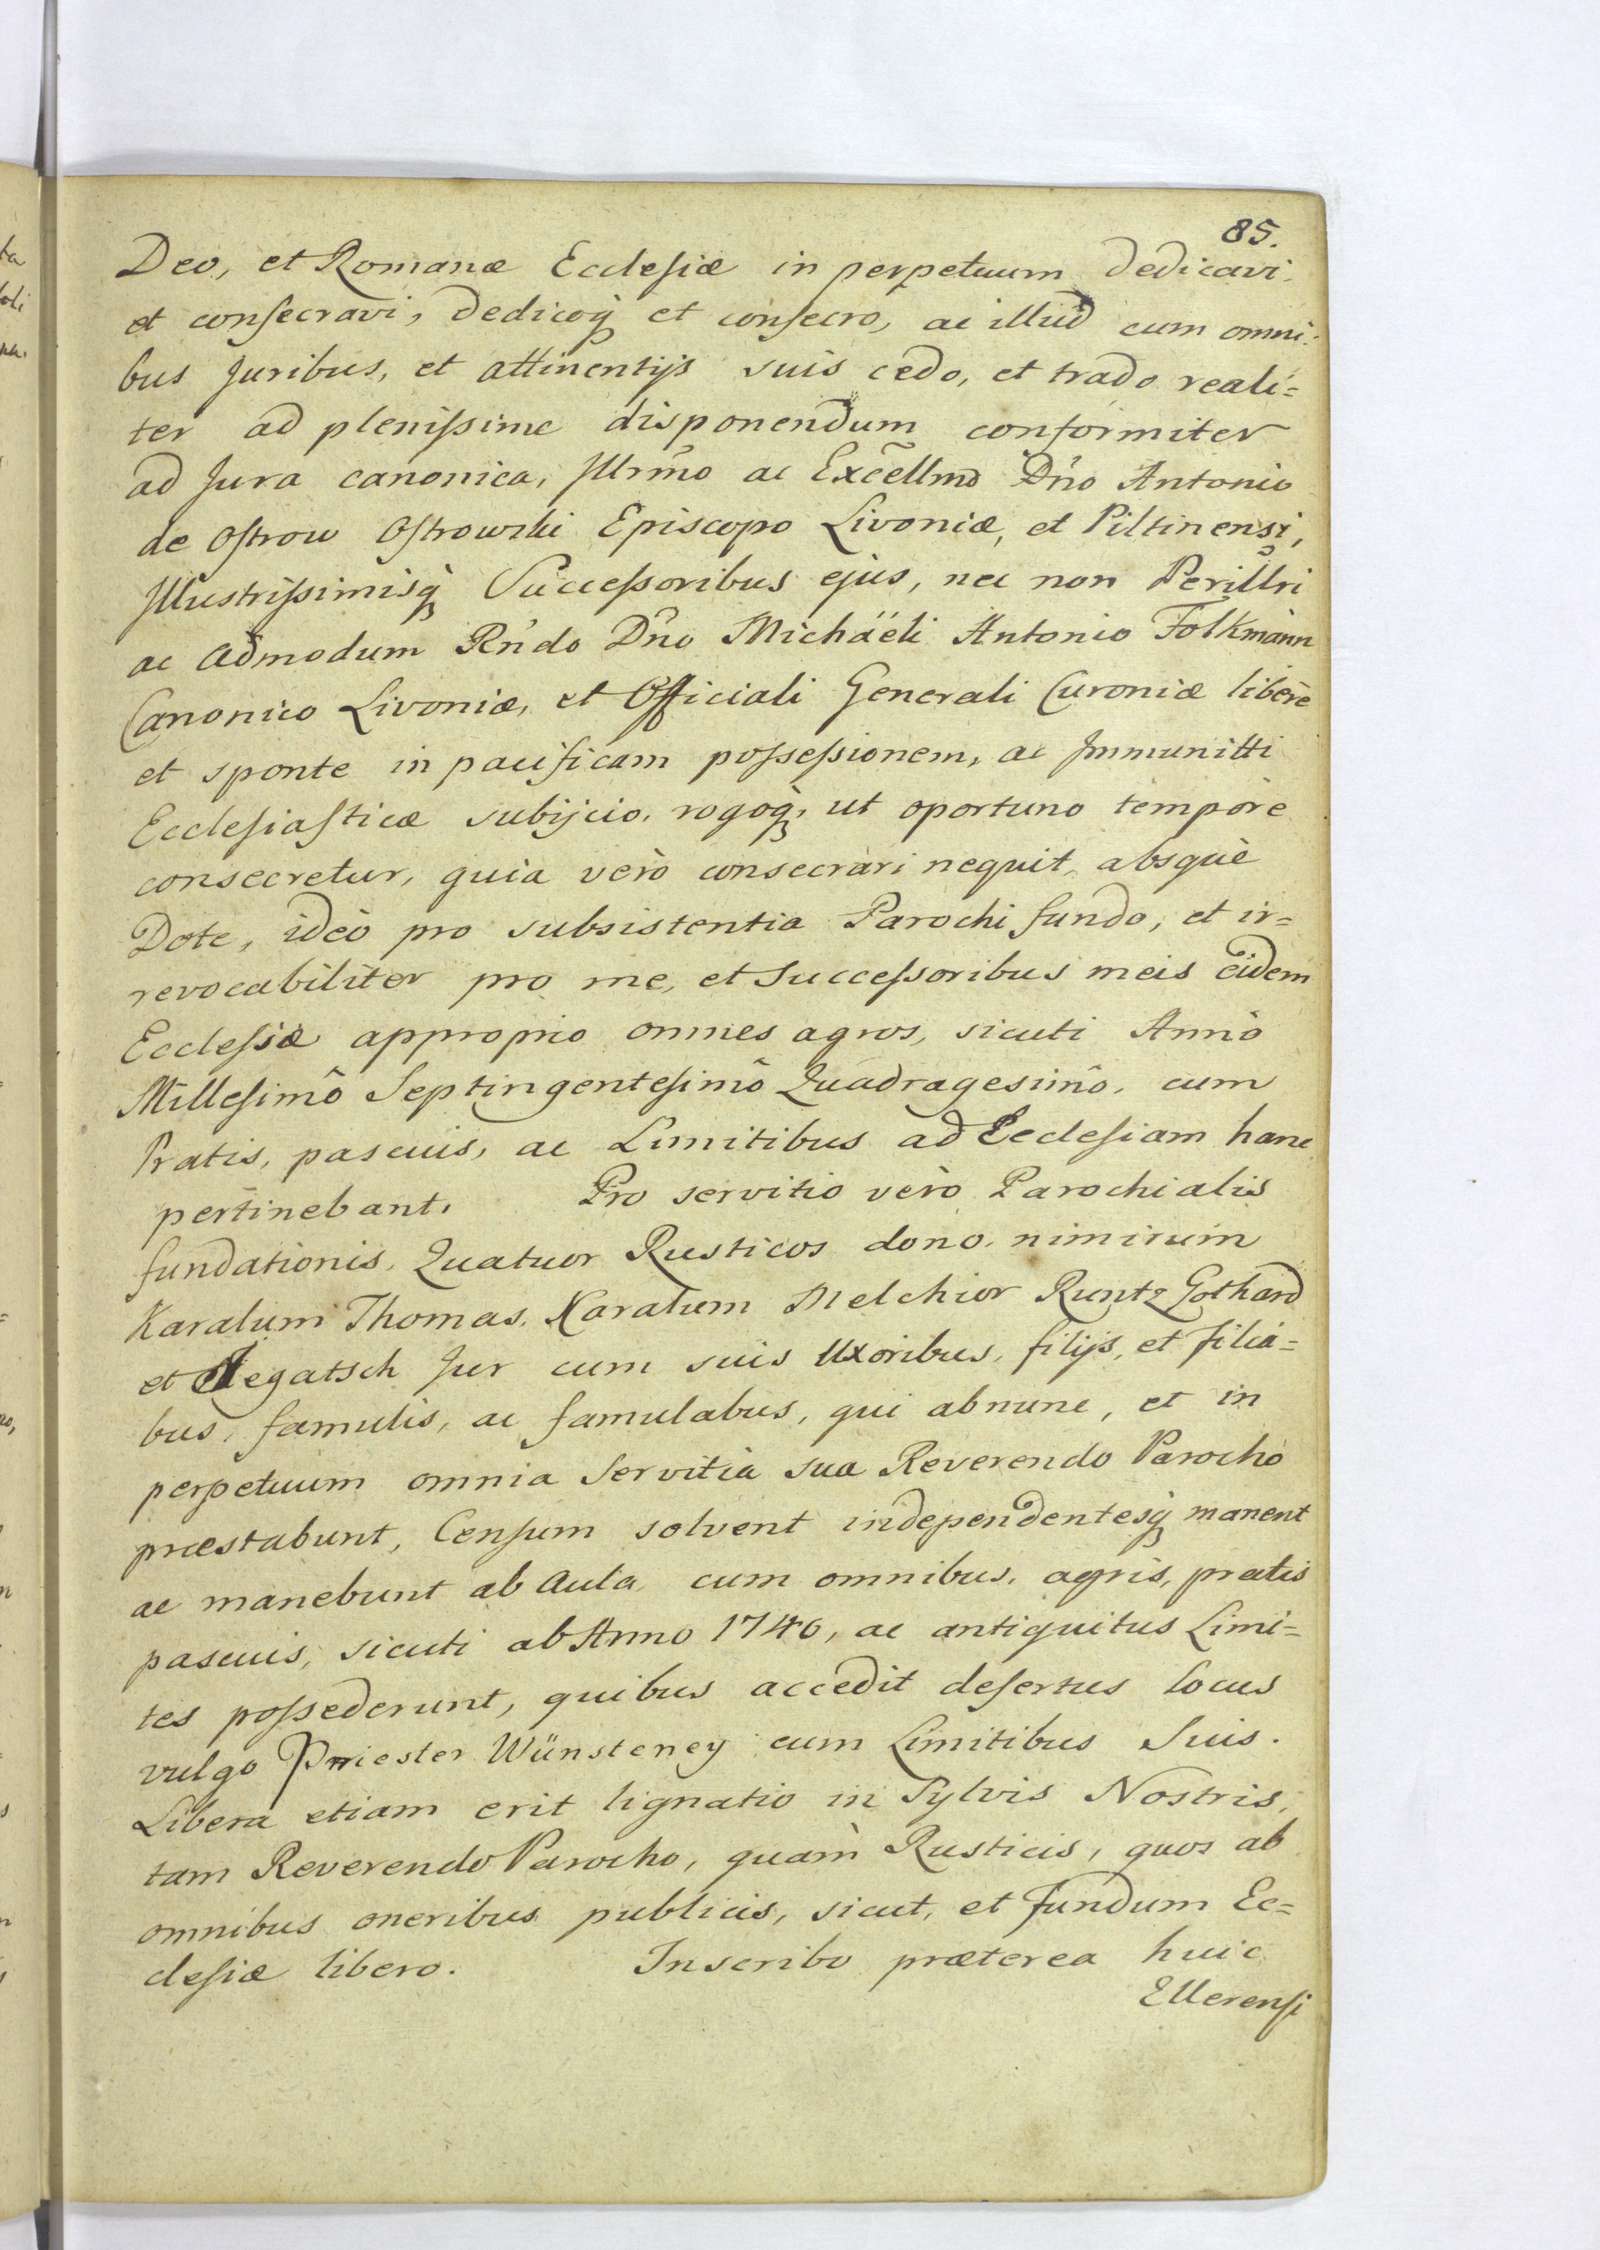 85.
Deo, et Romanæ Ecclesiæ in perpetuum dedicavi
et consecravi, dedicoq̀ et consecro, ac illud cum omni-
bus Juribus, et attinentijs suis cedo, et trado reali=
ter ad plenissime disponendum conformiter
ad Jura canonica, Illrm̃o ac Excẽllmo Dńo Antonio
de Ostrow Ostrowski Episcopo Livoniæ, et Piltinensi,
Illustrissimisq̀ Successoribus ejus, nec non Perillri
ac admodum Rńdo Dńo Michäeli Antonio Folkmann
Canonico Livoniæ, et Officiali Generali Curoniæ liberè
et sponte in pacificam possessionem, ac Immunitti
Ecclesiasticæ subijcio, rogoq̀, ut oportuno tempore
consecretur, quia verò consecrari nequit, absquè
Dote, ideò pro subsistentia Parochi fundo, et ir=
revocabiliter pro me, et Successoribus meis eidem
Ecclesiæ approprio omnes agros, sicuti Annô
Millesimô Septingentesimô Quadragesimô, cum
Pratis, pascuis, ac Limitibus ad Ecclesiam hanc
pertinebant. Pro servitio verò Parochialis
fundationis, Quatuor Rusticos dono, nimirum
Karalum Thomas, Karalum Melchior Runtz Gothard
et Jegatsch Jur cum suis Uxoribus, filijs, et filia=
bus, famulis, ac famulabus, qui abnunc, et in
perpetuum omnia Servitia sua Reverendo Parocho
præstabunt, Censum solvent independentesq̀ manent
ac manebunt ab Aula cum omnibus, agris, pratis
pascuis, sicuti ab Anno 1740, ac antiquitus Limi=
tes possederunt, quibus accedit desertus locus
vulgo Priester Wünsteney cum Limitibus Suis.
Libera etiam erit lignatio in Sylvis Nostris,
tam Reverendo Parocho, quàm Rusticis, quos ab
omnibus oneribus publicis, sicut, et fundum Ec=
clesiæ libero. Inscribo præterea huic
Ellerensi